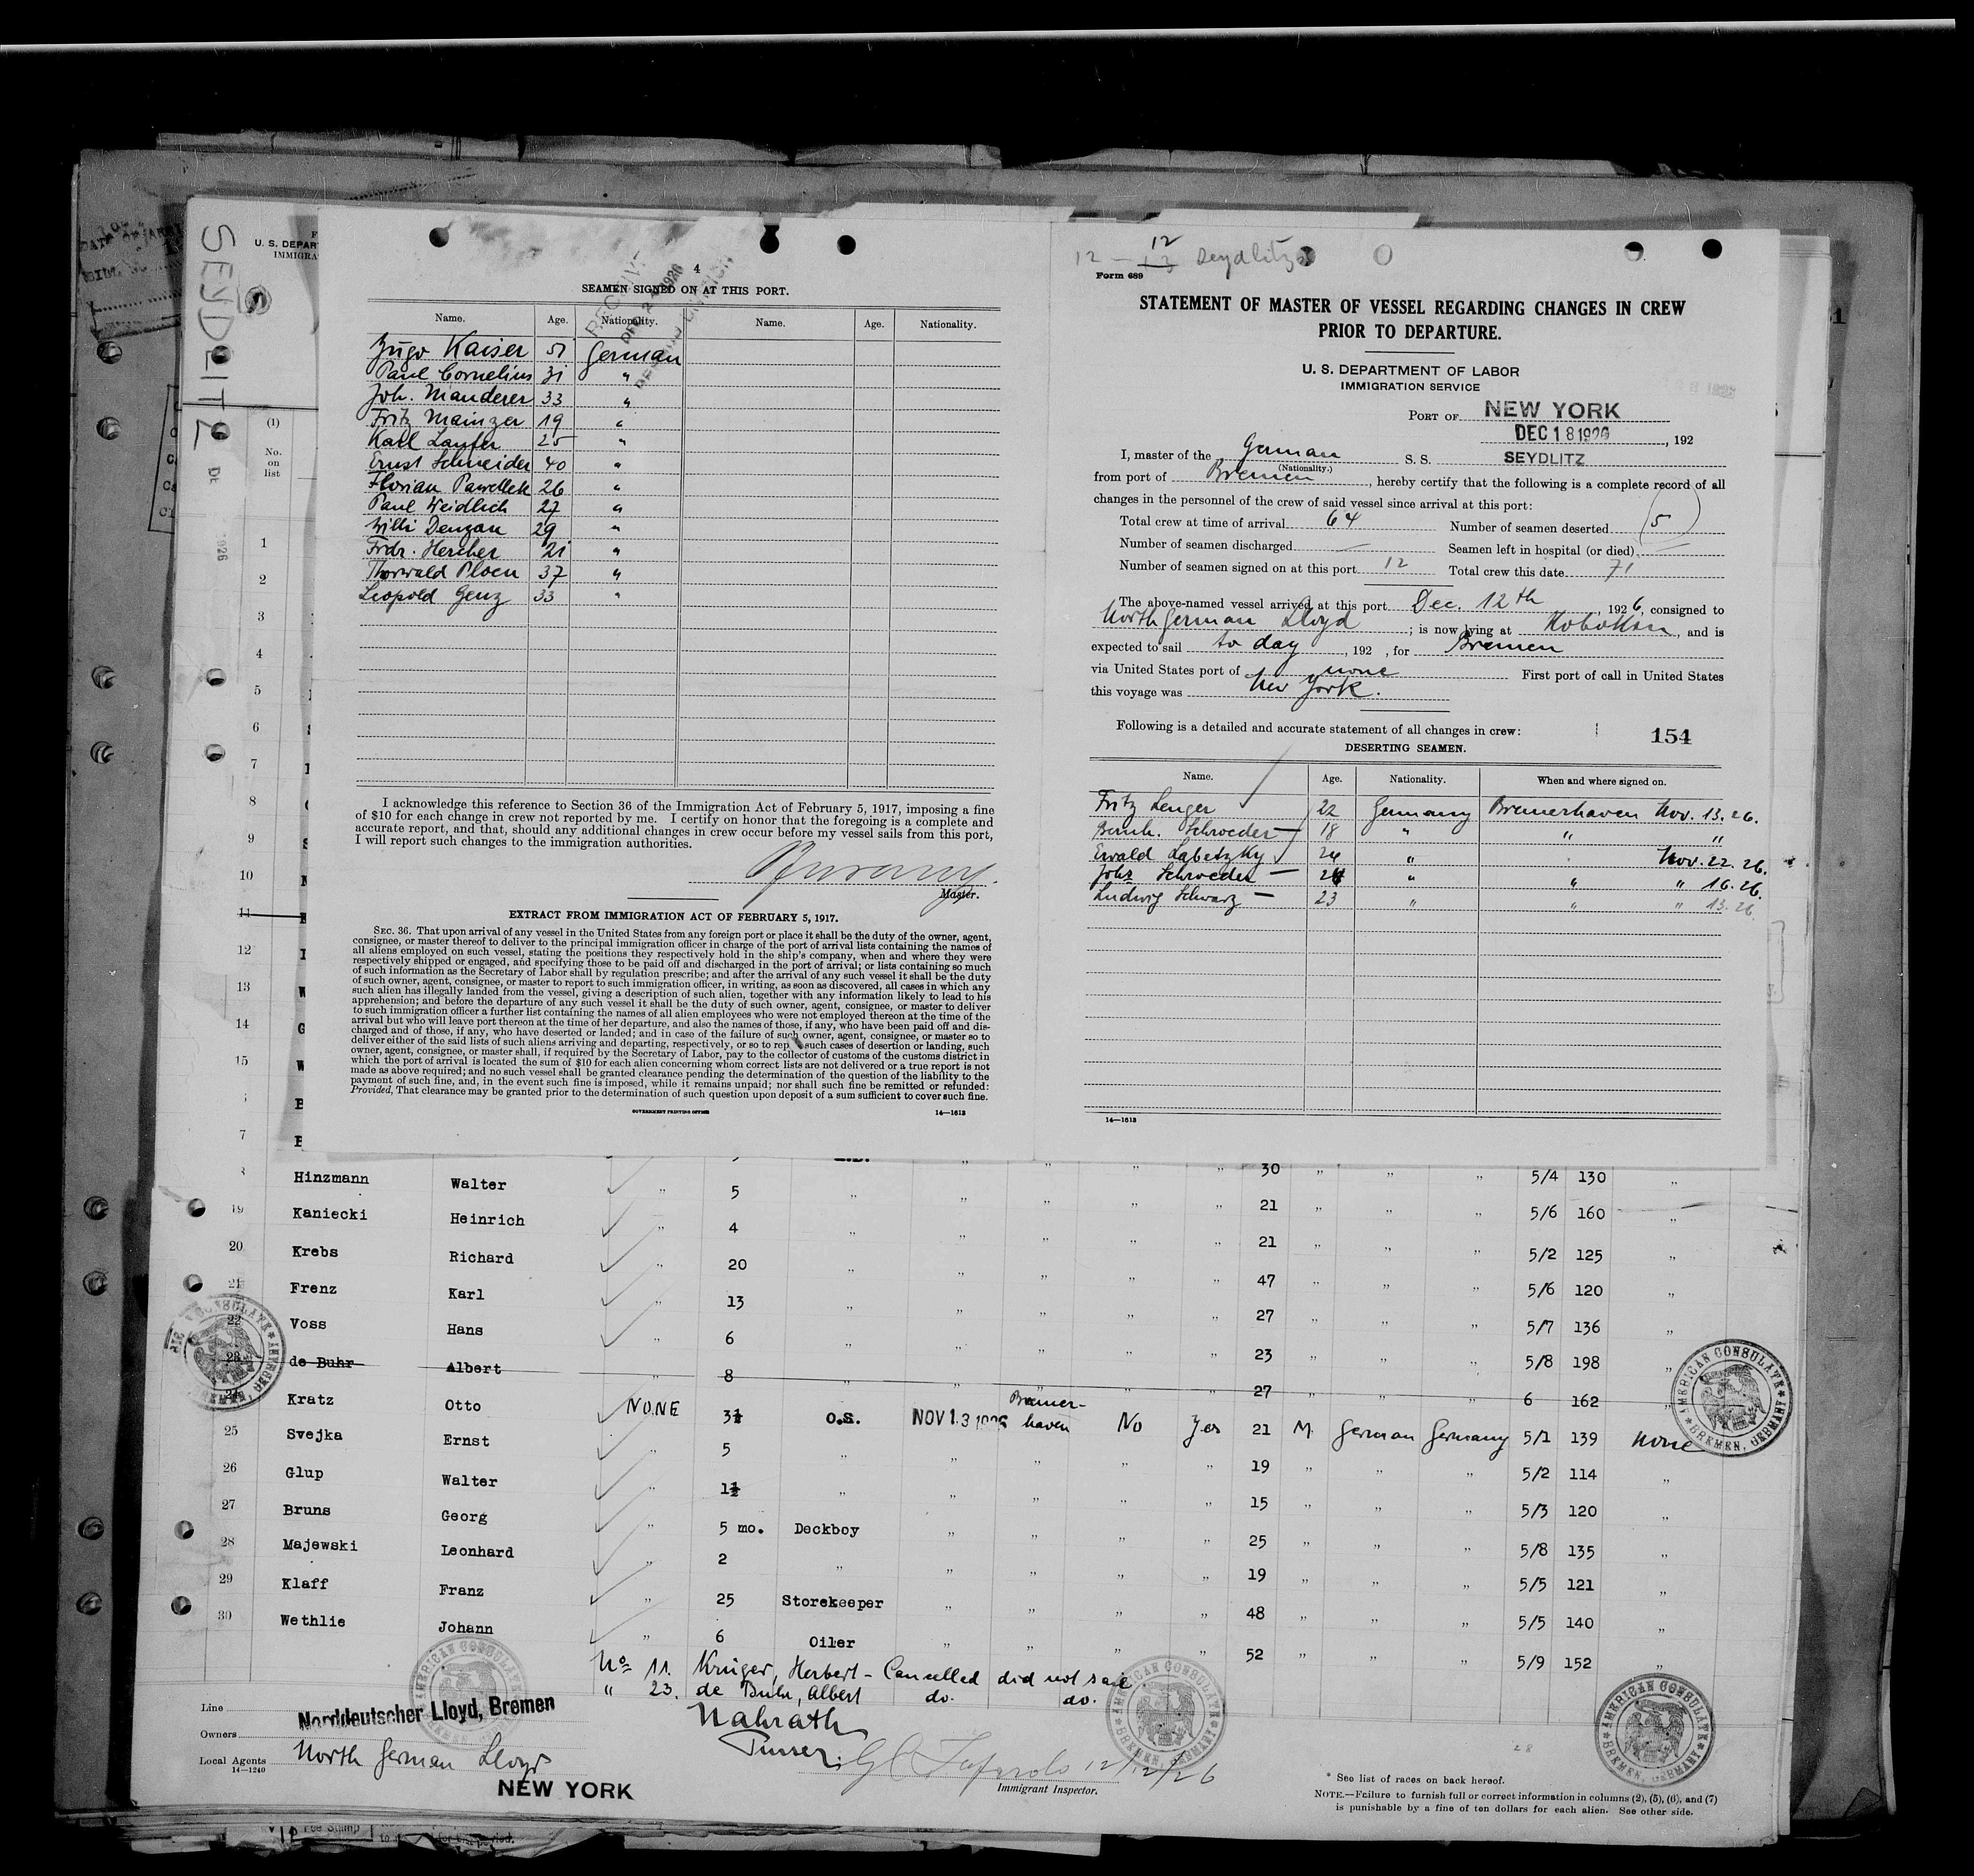 SEYDLITZ
U. S. DEPAR
IMMIGRA
(1)
No.
on
list
1
2
3
4
5
6
7
8
9
10
11
12
13
14
15
4
SEAMEN SIGNED ON AT THIS PORT.
Name. Age. Nationality. Name. Age. Nationality.
Hugo Kaiser 51 German
Paul Cornelius 31 "
Joh. Manderer 33 "
Fritz Mainzer 19 "
Karl 25 "
Ernst Schneider 40 "
Florian Pawellek 26 "
Paul Weidlich 27 "
Willi Denzan 29 "
Frdr. Hercher 21 "
Thorwald Ploen 37 "
Leopold Genz 33 "
I acknowledge this reference to Section 36 of the Immigration Act of February 5, 1917, imposing a fine
of $10 for each change in crew not reported by me. I certify on honor that the foregoing is a complete and
accurate report, and that, should any additional changes in crew occur before my vessel sails from this port,
I will report such changes to the immigration authorities.
Master.
EXTRACT FROM IMMIGRATION ACT OF FEBRUARY 5, 1917.
SEC. 36. That upon arrival of any vessel in the United States from any foreign port or place it shall be the duty of the owner, agent,
consignee, or master thereof to deliver to the principal immigration officer in charge of the port of arrival lists containing the names of
all aliens employed on such vessel, stating the positions they respectively hold in the ship's company, when and where they were
respectively shipped or engaged, and specifying those to be paid off and discharged in the port of arrival; or lists containing so much
of such information as the Secretary of Labor shall by regulation prescribe; and after the arrival of any such vessel it shall be the duty
of such owner, agent, consignee, or master to report to such immigration officer, in writing, as soon as discovered, all cases in which any
such alien has illegally landed from the vessel, giving a description of such alien, together with any information likely to lead to his
apprehension; and before the departure of any such vessel it shall be the duty of such owner, agent, consignee, or master to deliver
to such immigration officer a further list containing the names of all alien employees who were not employed thereon at the time of the
arrival but who will leave port thereon at the time of her departure, and also the names of those, if any, who have been paid off and dis-
charged and of those, if any, who have deserted or landed; and in case of the failure of such owner, agent, consignee, or master so to
deliver either of the said lists of such aliens arriving and departing, respectively, or so to rep such cases of desertion or landing, such
owner, agent, consignee, or master shall, if required by the Secretary of Labor, pay to the collector of customs of the customs district in
which the port of arrival is located the sum of $10 for each alien concerning whom correct lists are not delivered or a true report is not
made as above required; and no such vessel shall be granted clearance pending the determination of the question of the liability to the
payment of such fine, and, in the event such fine is imposed, while it remains unpaid; nor shall such fine be remitted or refunded:
Provided, That clearance may be granted prior to the determination of such question upon deposit of a sum sufficient to cover such fine.
GOVERNMENT PRINTING OFFICE 14—1613
12 — 13 12 Seydlitz
Form 689
STATEMENT OF MASTER OF VESSEL REGARDING CHANGES IN CREW
PRIOR TO DEPARTURE.
U. S. DEPARTMENT OF LABOR
IMMIGRATION SERVICE
PORT OF NEW YORK
DEC 18 1926, 192
I, master of the German S. S. SEYDLITZ
(Nationality.)
from port of Bremen, hereby certify that the following is a complete record of all
changes in the personnel of the crew of said vessel since arrival at this port:
Total crew at time of arrival 64 Number of seamen deserted (5)
Number of seamen discharged — Seamen left in hospital (or died) —
Number of seamen signed on at this port 12 Total crew this date 71
The above-named vessel arrived at this port Dec. 12th, 1926, consigned to
North German Lloyd; is now lying at Hoboken, and is
expected to sail to day, 192 , for Bremen
via United States port of none First port of call in United States
this voyage was New York.
Following is a detailed and accurate statement of all changes in crew: 154
DESERTING SEAMEN.
Name. Age. Nationality. When and where signed on.
Fritz Lenger 22 Germany Bremerhaven Nov. 13. 26.
Bernh. Schroeder 18 " " "
Ewald Labetzky 24 " Nov. 22. 26.
Johs Schroeder 24 " " " 16. 26.
Ludwig Schwarz 23 " " " 13. 26.
14—1613
30 " " " 5/4 130 "
Hinzmann Walter " 5 " " " " " 21 " " " 5/6 160 "
19 Kaniecki Heinrich " 4 " " " " " 21 " " " 5/2 125 "
20 Krebs Richard " 20 " " " " " 47 " " " 5/6 120 "
21 Frenz Karl " 13 " " " " " 27 " " " 5/7 136 "
22 Voss Hans " 6 " " " " " 23 " " " 5/8 198 "
23 de Buhr Albert " 8 " " " " " 27 " " " 6 162 "
24 Kratz Otto NONE 3½ O.S. NOV 13 1926 Bremer-haven No Yes 21 M. German Germany 5/1 139 None
25 Svejka Ernst " 5 " " " " " 19 " " " 5/2 114 "
26 Glup Walter " 1½ " " " " " 15 " " " 5/3 120 "
27 Bruns Georg " 5 mo. Deckboy " " " " 25 " " " 5/8 135 "
28 Majewski Leonhard " 2 " " " " " 19 " " " 5/5 121 "
29 Klaff Franz " 25 Storekeeper " " " " 48 " " " 5/5 140 "
30 Wethlie Johann " 6 Oiler " " " " 52 " " " 5/9 152 "
No 11. Krüger, Herbert - Cancelled did not sail
" 23. de Buhr, Albert do. do.
Line Norddeutscher Lloyd, Bremen
Nahrath
Owners
Purser.
Local Agents North German Lloyd
14—1240
NEW YORK
12/12/26
Immigrant Inspector.
* See list of races on back hereof.
NOTE.—Failure to furnish full or correct information in columns (2), (5), (6), and (7)
is punishable by a fine of ten dollars for each alien. See other side.
AMERICAN CONSULATE
BREMEN, GERMANY
AMERICAN CONSULATE
BREMEN, GERMANY